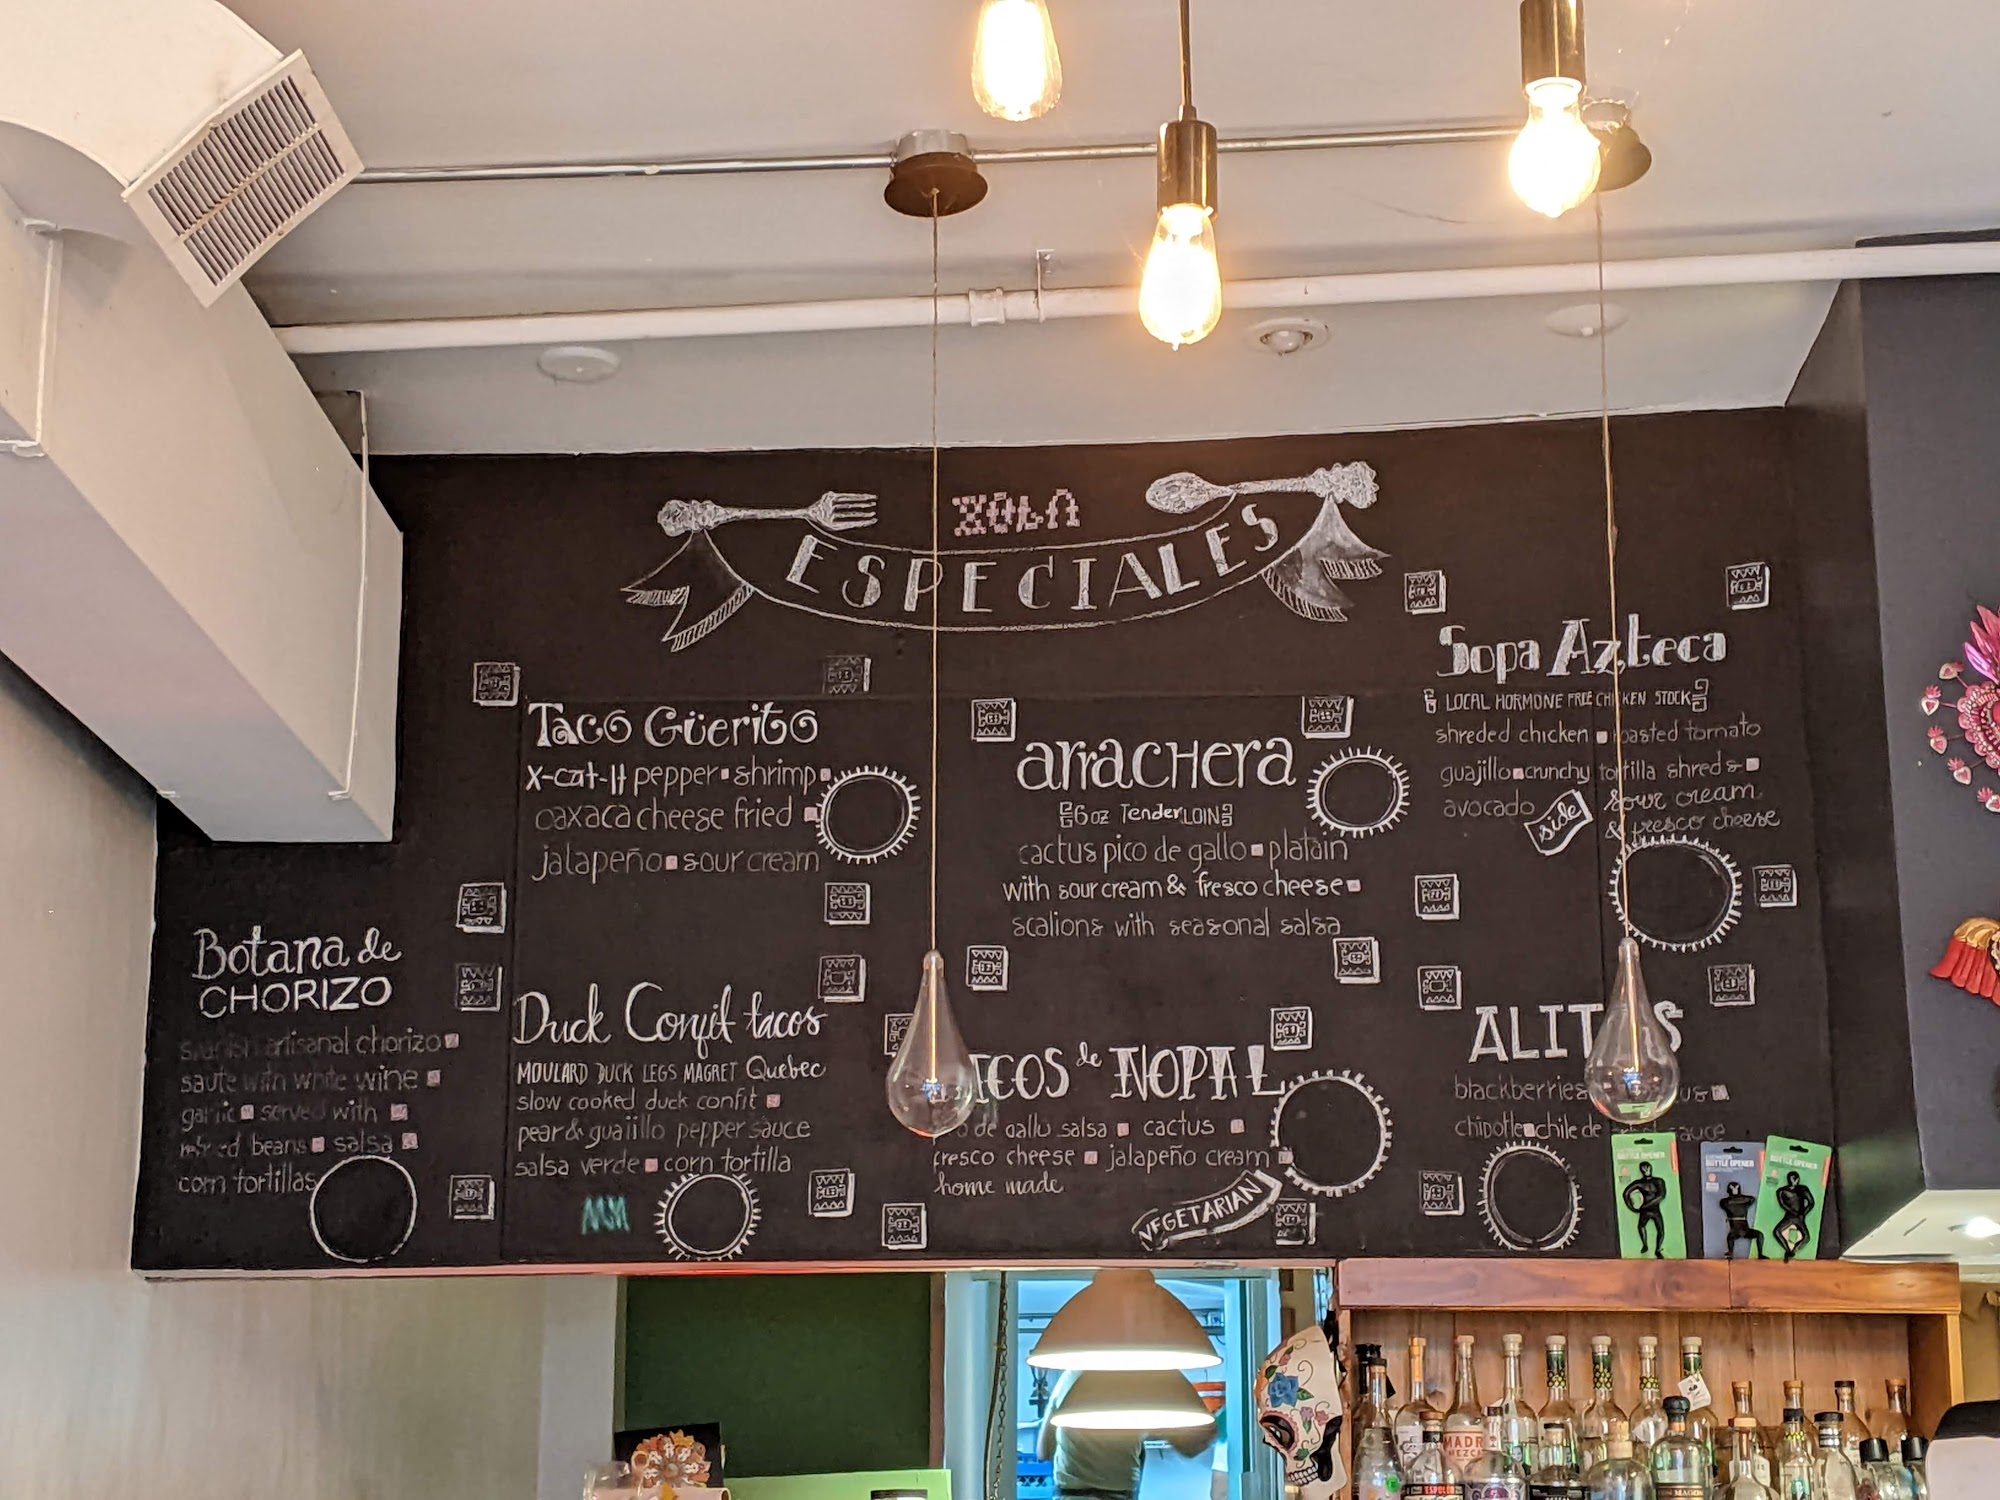 XOLA
ESPECIALES
Taco Güerito
x-cat-It pepper shrimp
oaxaca cheese fried
jalapeño sour cream
arracHera
6oz TenderLOIN
cactus pico de gallo platain
with sour cream & fresco cheese
scalions with seasonal salsa
Sopa Azteca
LOCAL HORMONE FREE CHICKEN STOCK
shreded chicken roasted tomato
guajillo crunchy tortilla shreds
avocado side sour cream
& fresco cheese
Botana de
CHORIZO
artisanal chorizo
saute with white wine
garlic served with
beans salsa
corn tortillas
Duck Confit tacos
MOULARD DUCK LEGS MAGRET Quebec
slow cooked duck confit
pear & guajillo pepper sauce
salsa verde corn tortilla
de NOPAL
de gallo salsa cactus
fresco cheese jalapeño cream
home made
VEGETARIAN
ALITAS
blackberries
chipotle chile de sauce
BOTTLE OPENER
BOTTLE OPENER
MADRE
MEZCAL
ESPOLON